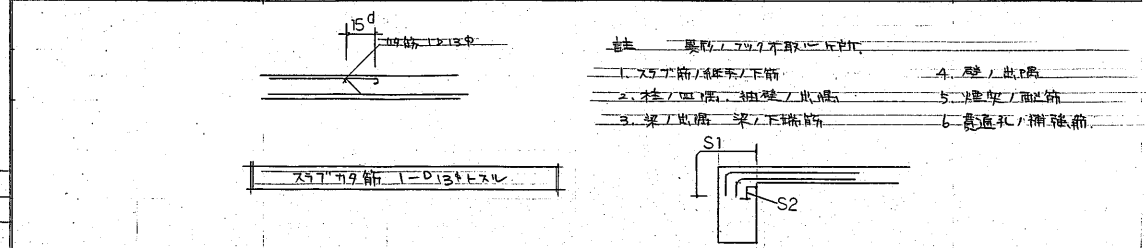 15d
カタ筋 1-D13φ
註 異形ノフック不取ヶ所
1. スラブ筋ノ継手ノ下筋
2. 柱ノ四隅、袖壁ノ出隅
3. 梁ノ出隅 梁ノ下端筋
4. 壁ノ出隅
5. 煙突ノ配筋
6. 貫通孔ノ補強筋
S1
S2
スラブカタ筋 1-D13φトスル